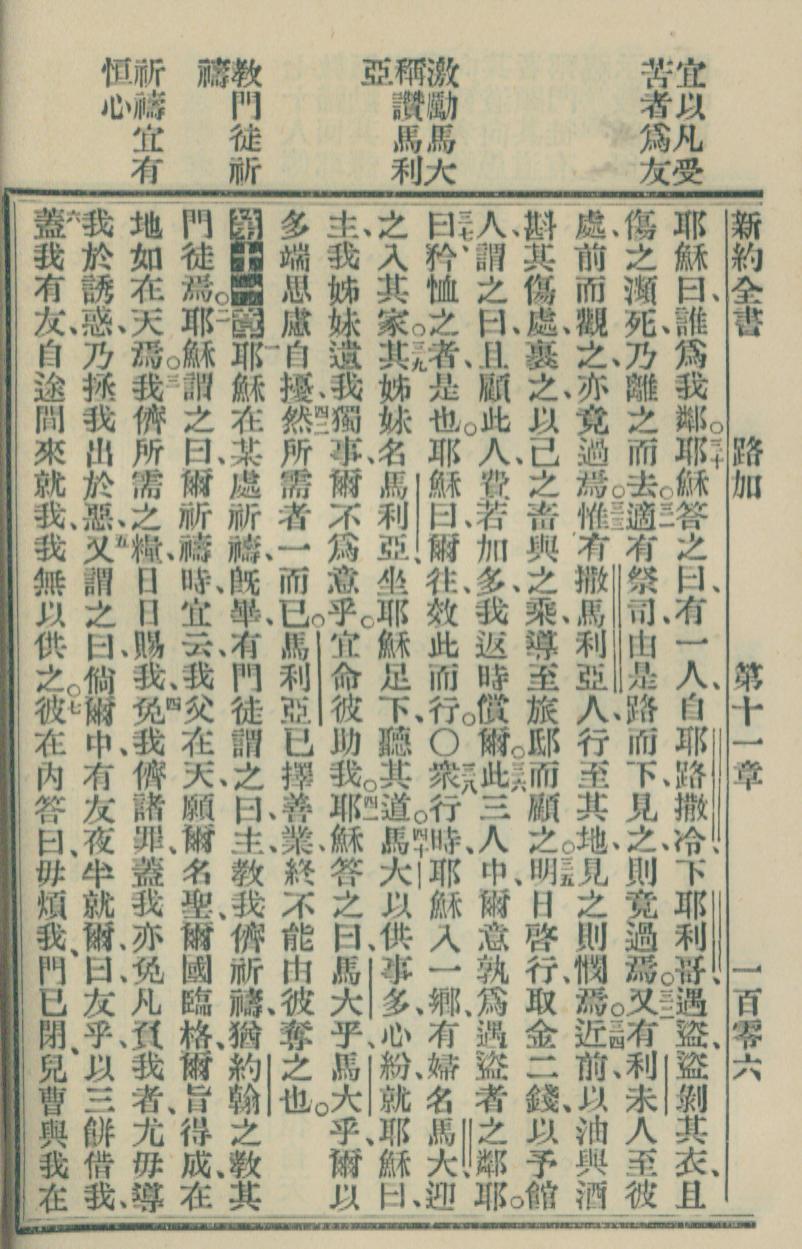 宜以凡受
苦者爲友
激勵馬大
稱讚馬利
亞
教門徒祈
禱
祈禱宜有
恒心
新約全書 路加 第十一章 一百零六
耶穌曰、誰爲我鄰。○三十耶穌答之曰、有一人、自耶路撒冷、下耶利哥、遇盜、盜剝其衣、且
傷之瀕死、乃離之而去。○三一適有祭司、由是路而下、見之、則竟過焉。○三二又有利未人至彼
處、前而觀之、亦竟過焉。○三三惟有撒馬利亞人、行至其地、見之則憫焉。○三四近前、以油與酒
斟其傷處、裹之、以己之畜與之乘、導至旅邸而顧之。○三五明日啓行、取金二錢、以予館
人、謂之曰、且顧此人、費若加多、我返時償爾。○三六此三人中、爾意孰爲遇盜者之鄰耶。
三七曰、矜恤之者是也。耶穌曰、爾往、效此而行。○三八衆行時、耶穌入一鄉、有婦名馬大、迎
之入其家。○三九其姊妹名馬利亞、坐耶穌足下、聽其道。○四十馬大以供事多、心紛、就耶穌曰、
主、我姊妹遺我獨事、爾不爲意乎。宜命彼助我。○四一耶穌答之曰、馬大乎、馬大乎、爾以
多端思慮自擾、四二然所需者一而已。馬利亞已擇善業、終不能由彼奪之也。
第十一章一耶穌在某處祈禱、旣畢、有門徒謂之曰、主、教我儕祈禱、猶約翰之教其
門徒焉。○二耶穌謂之曰、爾祈禱時、宜云、我父在天、願爾名聖、爾國臨格、爾旨得成、在
地如在天焉。○三我儕所需之糧、日日賜我、四免我儕諸罪、蓋我亦免凡負我者、尤毋導
我於誘惑、乃拯我出於惡、五又謂之曰、倘爾中有友、夜半就爾曰、友乎、以三餅借我、
六蓋我有友、自途間來就我、我無以供之。○七彼在內答曰、毋煩我、門已閉、兒曹與我在